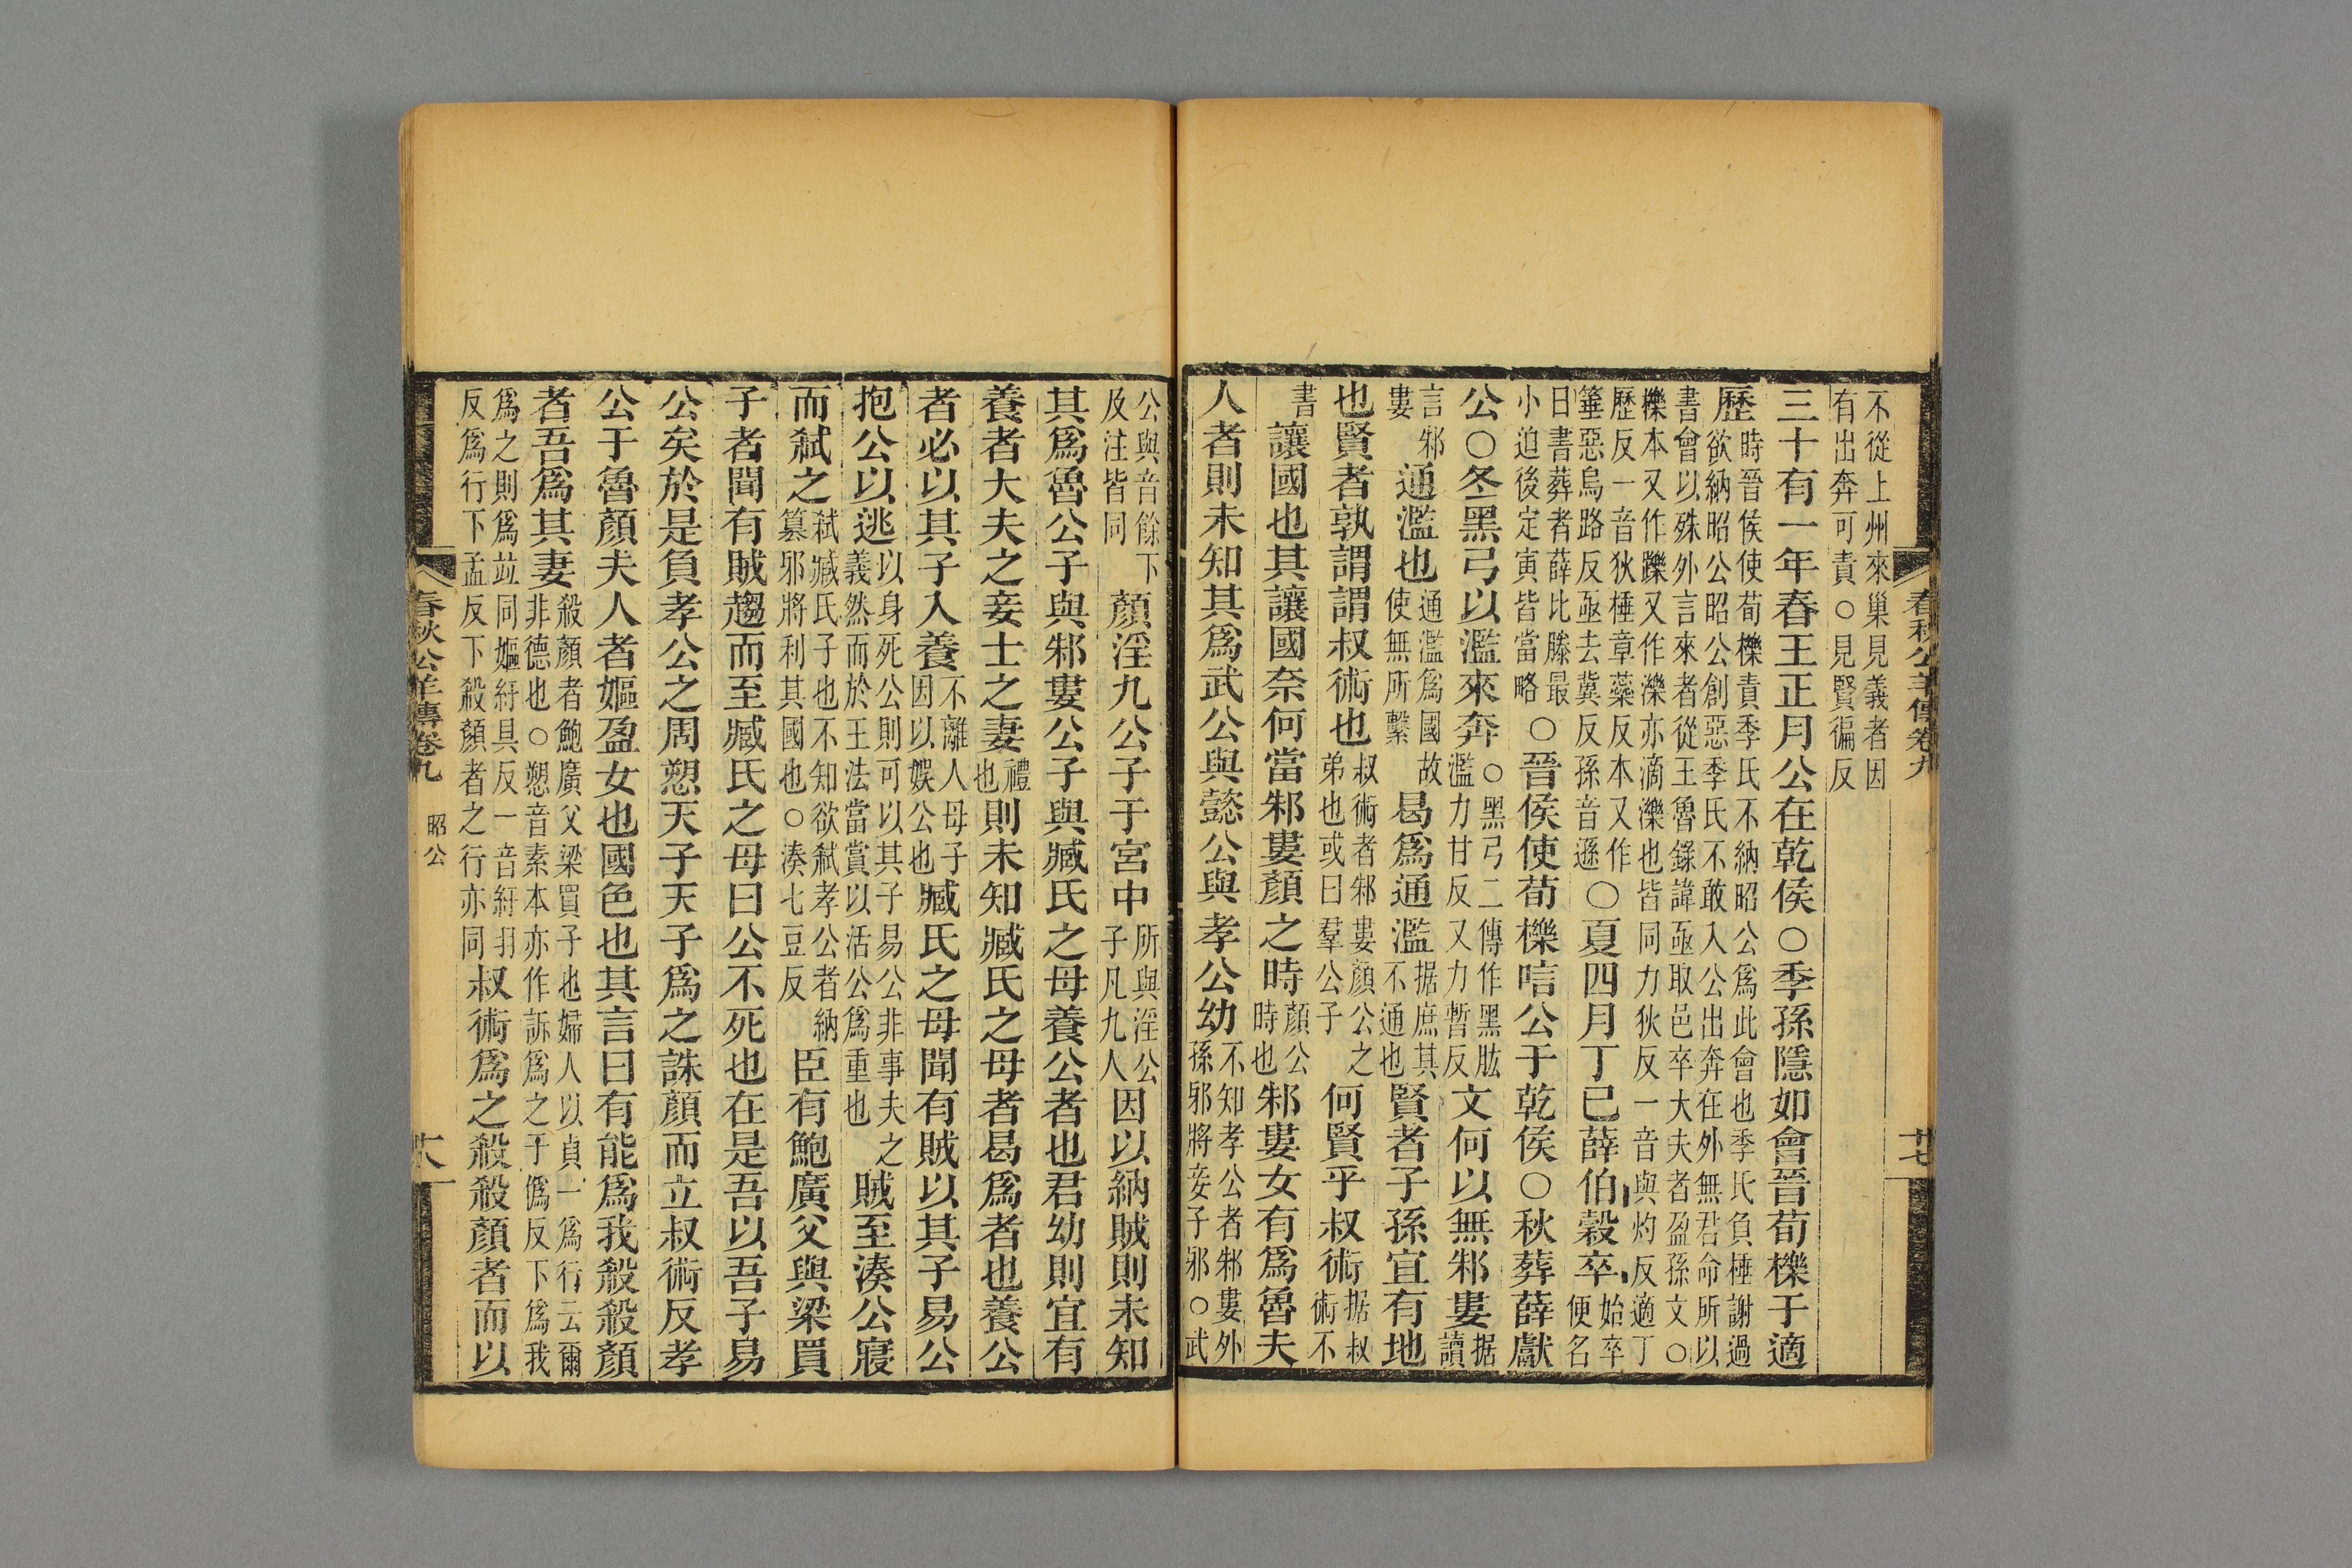 春秋公羊傳卷九
廿七
不從上州來巢見義者因
有出奔可責○見賢徧反
三十有一年春王正月公在乾侯○季孫隱如會晉荀櫟于適
歷
時晉侯使荀櫟責季氏不納昭公爲此會也季氏負棰謝過
欲納昭公昭公創惡季氏不敢入公出奔在外無君命所以
書會以殊外言來者從王魯錄諱亟取邑卒大夫者盈孫文○
櫟本又作躒又作濼亦滴濼也皆同力狄反一音與灼反適丁
歷反一音狄棰章蘂反本又作
箠惡烏路反亟去冀反孫音遜
○夏四月丁巳薛伯穀卒
始卒
便名
日書葬者薛比滕最
小迫後定寅皆當略
○晉侯使荀櫟唁公于乾侯○秋葬薛獻
公○冬黑弓以濫來奔
○黑弓二傳作黑肱
濫力甘反又力暫反
文何以無邾婁
据
讀
言邾
婁
通濫也
通濫爲國故
使無所繫
曷爲通濫
据庶其
不通也
賢者子孫宜有地
也賢者孰謂謂叔術也
叔術者邾婁顏公之
弟也或曰羣公子
何賢乎叔術
据叔
術不
書
讓國也其讓國奈何當邾婁顏之時
顏公
時也
邾婁女有爲魯夫
人者則未知其爲武公與懿公與孝公幼
不知孝公者邾婁外
孫邪將妾子邪○武
公與音餘下
及注皆同
顏淫九公子于宮中
所與淫公
子凡九人
因以納賊則未知
其爲魯公子與邾婁公子與臧氏之母養公者也君幼則宜有
養者大夫之妾士之妻
禮
也
則未知臧氏之母者曷爲者也養公
者必以其子入養
不離人母子
因以娛公也
臧氏之母聞有賊以其子易公
抱公以逃
以身死公則可以其子易公非事夫之
義然而於王法當賞以活公爲重也
賊至湊公寢
而弒之
弒臧氏子也不知欲弒孝公者納
篡邪將利其國也○湊七豆反
臣有鮑廣父與梁買
子者聞有賊趨而至臧氏之母曰公不死也在是吾以吾子易
公矣於是負孝公之周愬天子天子爲之誅顏而立叔術反孝
公于魯顏夫人者嫗盈女也國色也其言曰有能爲我殺殺顏
者吾爲其妻
殺顏者鮑廣父梁買子也婦人以貞一爲行云爾
非德也○愬音素本亦作訴爲之于僞反下爲我
爲之則爲竝同嫗紆具反一音紆羽
反爲行下孟反下殺顏者之行亦同
叔術爲之殺殺顏者而以
春秋公羊傳卷九
昭公